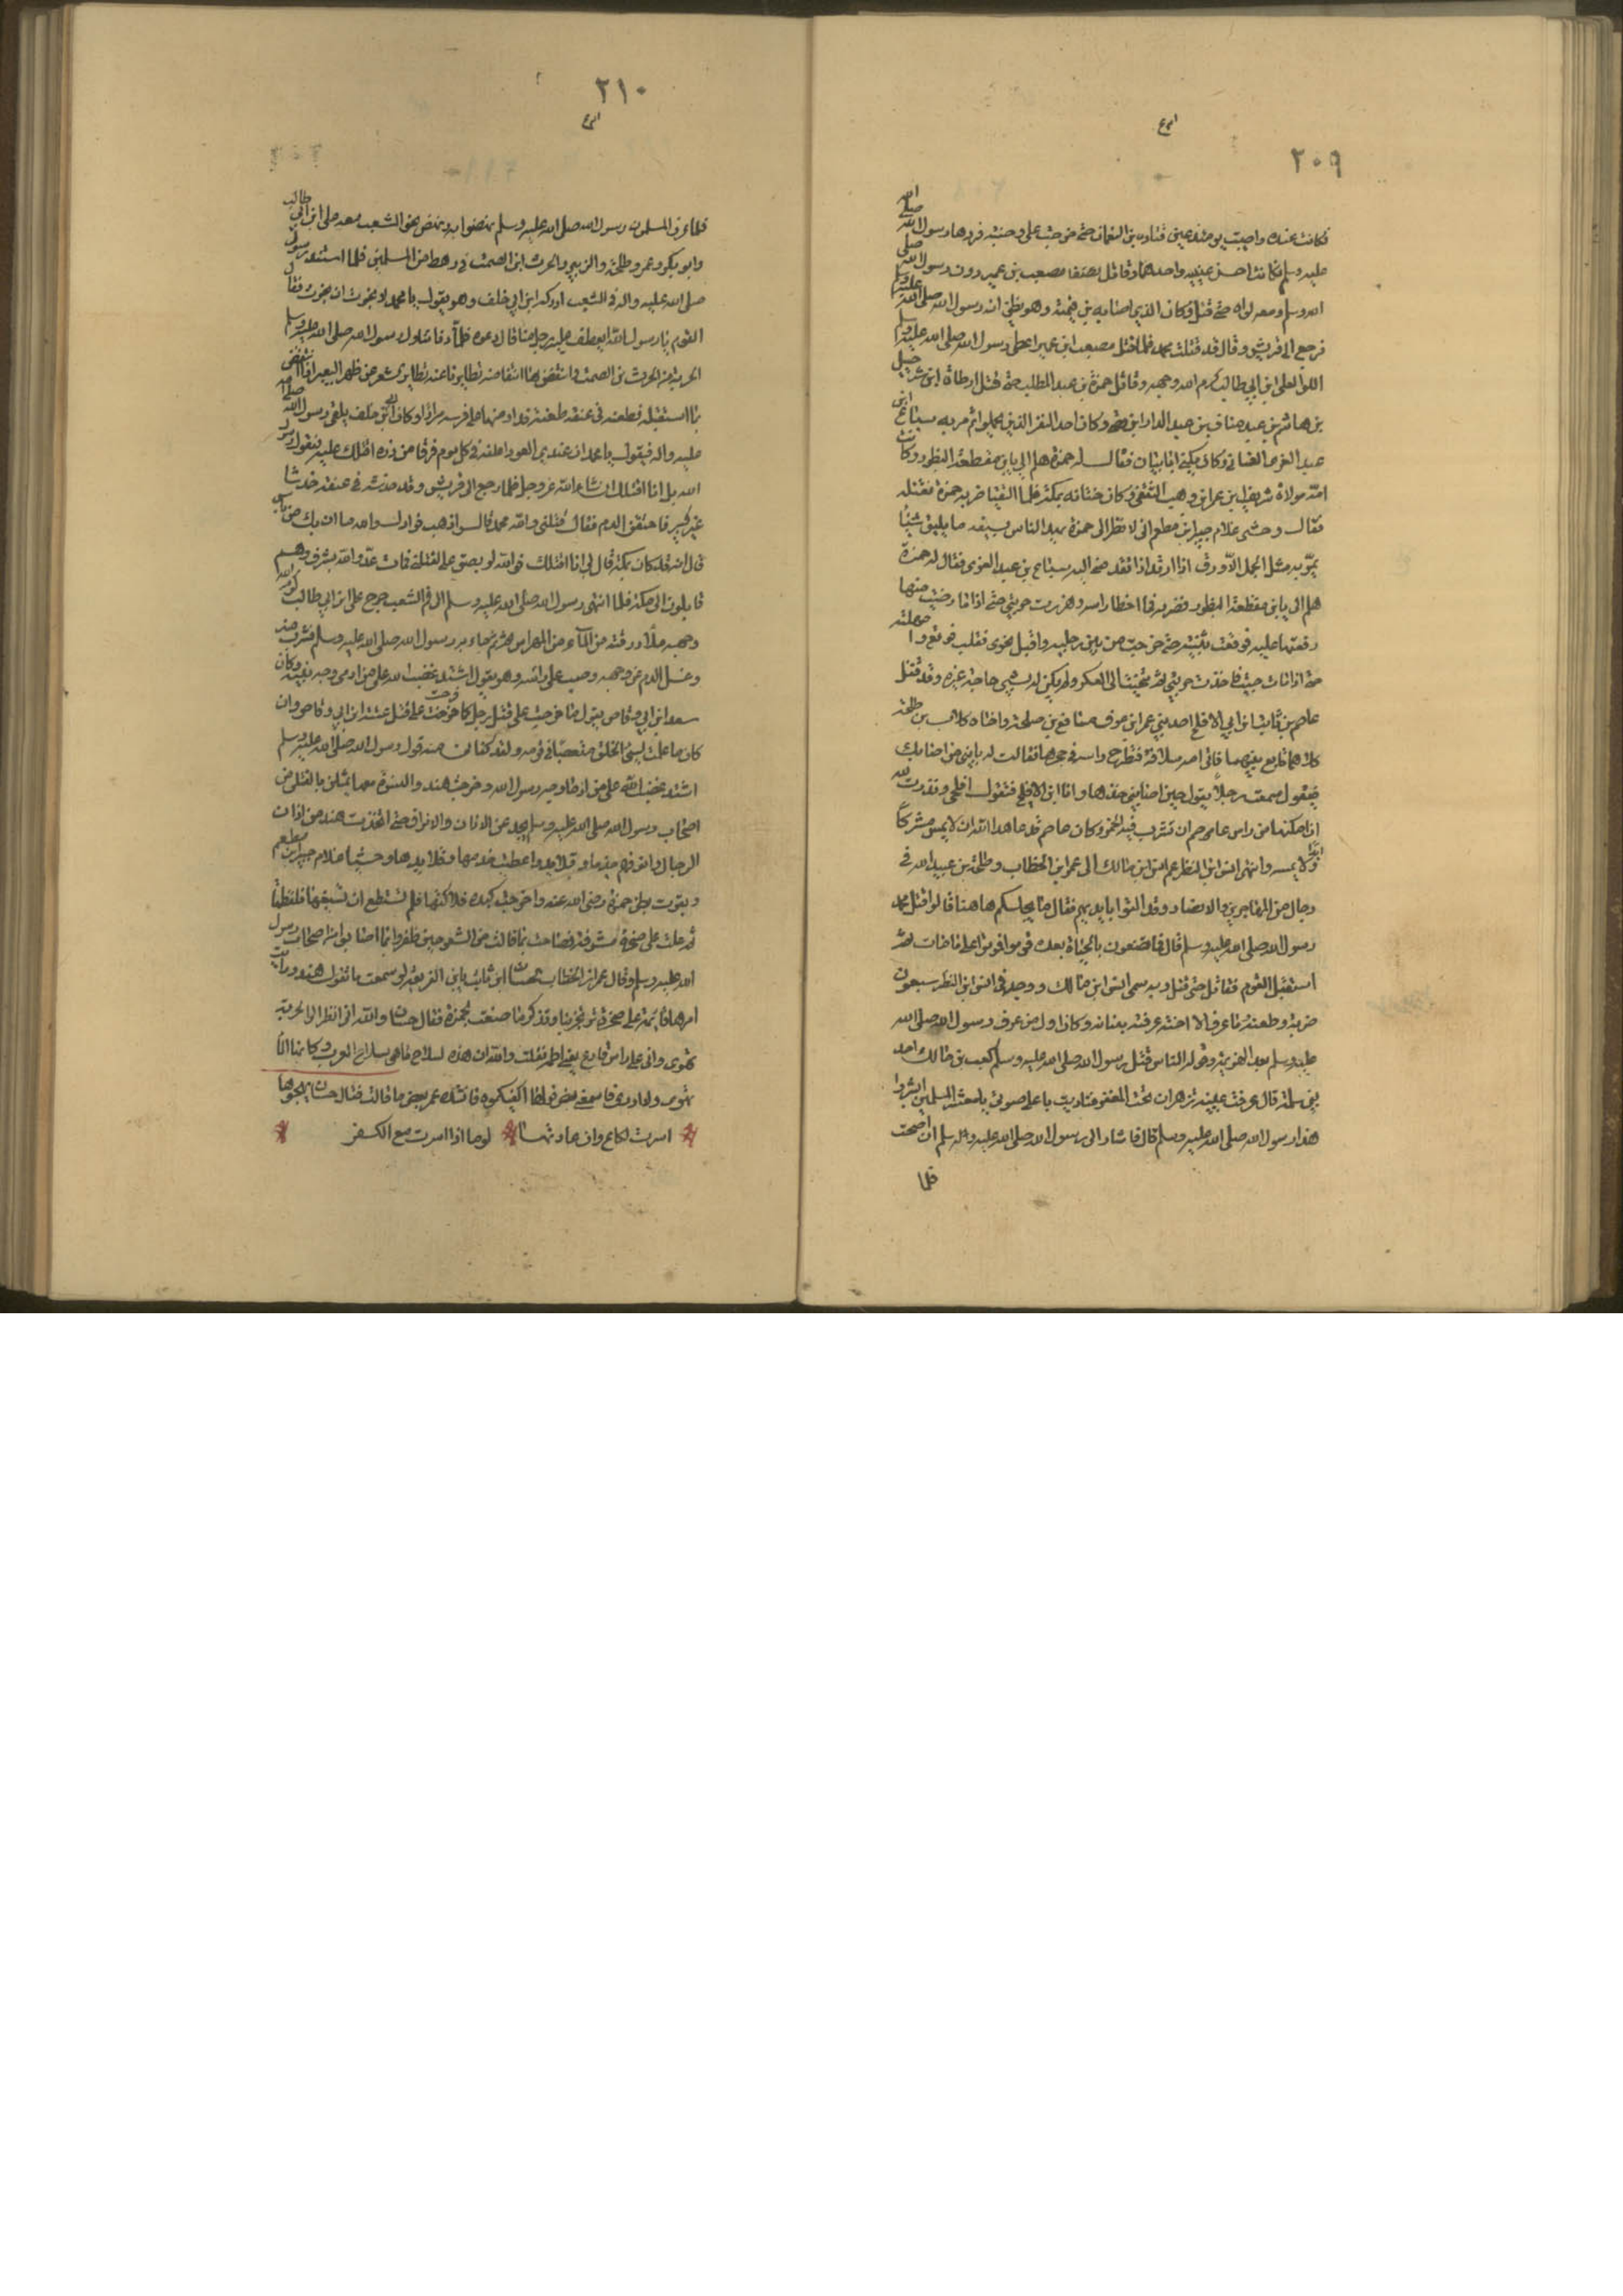 ٢٠٩
فكانت عنده واصيبت يومئذ عين قتاده بن النعمان حتى خرجت على وجنته فردها رسول الله صلى الله
عليه وسلم فكانت احسن عينيه واحدهما وقاتل مصعب بن عمير دون رسول الله صلى
الله وسلم ومعه لواه حتى قتل وكان الذي اصابه بن قيمئة وهو يظن انه رسول الله صلى الله عليه وسلم
فرجع الى قريش وقال قد قتلت محمد فلما قتل مصعب ابن عمير اعطى رسول الله صلى الله عليه وسلم
اللوا لعلى ابن ابي طالب كرم الله وجهه وقاتل حمزة بن عبد المطلب حتى قتل ارطاة ابن شرحبيل
بن هاشم بن عبد مناف بن عبد الدار ابن وكان احد النفر الذين يحملوا ثم مر به سباع ابن
عبد العزى الغساني وكان يكنى ابا نيار فقال له حمزة هلم الى يابن مقطعة البظور وكانت
امه مولاة شريف ابن عمر ابن وهب الثقفي وكان ختانه بمكة فلما التقيا ضربه حمزة فقتله
فقال وحشى غلام جبير ابن مطعم انى لانظر الى حمزة يهد الناس بسيفه ما يليق شيئا
يمر به مثل الجمل الاورق اذا تقدمنى اليه سباع بن عبد العزى فقال له حمزة
هلم الى يابن مقطعة البظور فضربه فما اخطا راسه وهززت حربتي حتى اذا ما رضيت منها
دفعتها عليه فوقعت بثنيته حتى خرجت من بين رجليه واقبل نحوى فغلب فوقع وامهلته
حتى اذا مات جيت فاخذت حربتي ثم تنحيت الى العسكر ولم يكن لى بشيى حاجة غيره وقد قتل
عاصم بن ثابت ابن ابي الاقلح احد بني عمر ابن عوف مسافع بن طلحة واخاه كلاب بن طلحة
كلاهما فاتى امه سلافة فتطرح راسه في حجرها فقالت له يا بنى من اصابك
فيقول سمعت رجلا يقول حين اصابني خذها وانا ابن الاقلح فتقول اقلحي ونذرت لله
ان امكنها من راس عاصم ان تشرب فيه الخمر وكان عاصم قد عاهد الله ان لا يمس مشركا
ابدا ولا يمسه وانتهى انس ابن النضر عم انس ابن مالك الى عمر ابن الخطاب وطلحة بن عبيد الله في
رجال من المهاجرين والانصار وقد القوا بايديهم فقال ما يجلسكم هاهنا قالوا قتل محمد
رسول الله صلى الله عليه وسلم قال فما تصنعون بالحياة بعده قوموا فموتوا على ما مات ثم
استقبل القوم فقاتل حتى قتل وبه سمى انس ابن مالك ووجد في انس ابن النضر سبعون
ضربة وطعنة فما عرف الا اخته عرفته ببنانه وكان اول من عرف رسول الله صلى الله
عليه وسلم بعد الهزيمة وقول الناس قتل رسول الله صلى الله عليه وسلم كعب بن مالك احد
بني سلمة قال عرفت عينيه تزهران تحت المغفر فناديت باعلى صوتي يا معشر المسلمين ابشروا
هذا رسول الله صلى الله عليه وسلم قال فاشار الى رسول الله صلى الله عليه وسلم ان اصمت
فلما
٢١٠
فلما عرف المسلمون رسول الله صلى الله عليه وسلم نهضوا به ونهض نحو الشعب معه على ابن ابي طالب
وابو بكر وعمر وطلحة والزبير والحرث ابن الصمت في رهط من المسلمين فلما استند رسول
صلى الله عليه واله في الشعب ادركه ابن ابي خلف وهو يقول يا محمد لا نجوت ان نجوت فقال
القوم يا رسول الله ايعطف عليه رجل منا قال دعوه فلما دنا تناول رسول الله صلى الله عليه وسلم
الحربة من الحرث بن الصمت فانتفض بها انتفاضة تطايرنا عنه تطاير الشعر عن ظهر البعير اذا انتفض
ثم استقبله فطعنه في عنقه طعنة تدادا منها على فرسه مرارا وكان ابن خلف يلقى رسول الله صلى الله
عليه واله فيقول يا محمد ان عندي العود اعلفه في كل يوم فرقا من ذره اقتلك عليه فيقول رسول
الله بل انا اقتلك ان شاء الله عز وجل فلما رجع الى قريش وقد خدشه في عنقه خدشا
غير كبير فاحتقن الدم فقال قتلني والله محمد قالوا ذهب فوادك والله ما ان بك من باس
قال انه قد كان بمكة قال لي انا اقتلك فوالله لو بصق علي لقتلني فمات عدو الله بسرف وهم
قافلون الى مكة فلما انتهى رسول الله صلى الله عليه وسلم الى فم الشعب خرج على ابن ابي طالب كرم الله
وجهه ملأ درقته من الماء من المهراس ثم جاء به رسول الله صلى الله عليه وسلم فشرب منه
وغسل الدم عن وجهه وصب على راسه وهو يقول اشتد غضب الله على من ادمى وجه نبيه وكان
سعد ابن ابي وقاص يقول ما حرصت على قتل رجل كما حرصت على قتل عتبة ابن ابي وقاص وان
كان ما علمت لسيئ الخلق مبغضا في قومه ولقد كفاني منه قول رسول الله صلى الله عليه وسلم
اشتد غضب الله على من ادما وجه رسول الله وخرجت هند والنسوة معها يمثلن بالقتلى من
اصحاب رسول الله صلى الله عليه وسلم يجدعن الاذان والانوف حتى اتخذت هند من اذان
الرجال وانوفهم خدما وقلايد واعطت خدمها وقلايدها وحشيا غلام جبير ابن مطعم
وبقرت بطن حمزة رضى الله عنه واخرجت كبده فلاكتها فلم تستطع ان تسيغها فلفظتها
ثم علت على صخرة مشرفة فصاحت بما قالت من الشعر حين ظفروا بما اصابوا من اصحاب رسول
الله عليه وسلم وقال عمر ابن الخطاب لحسان ابن ثابت يابن الفريعة لو سمعت ما تقول هند ورايت
امرها قايمة على صخرة ترتجز بنا وتذكر ما صنعت بحمزة فقال حسان والله اني انظر الى الحربة
تهوى واني على راس فارع يعني اطمه فقلت والله ان هذه لسلاح ما هى بسلاح العرب وكانها انما
تهوى ولا ادرى فاسمعني بعض قولها اكفيكموه فانشد عمر بعض ما قالت فقال حسان يهجوها
اسرت لكاع وان عادتها لوما اذا اسرت مع الكفر